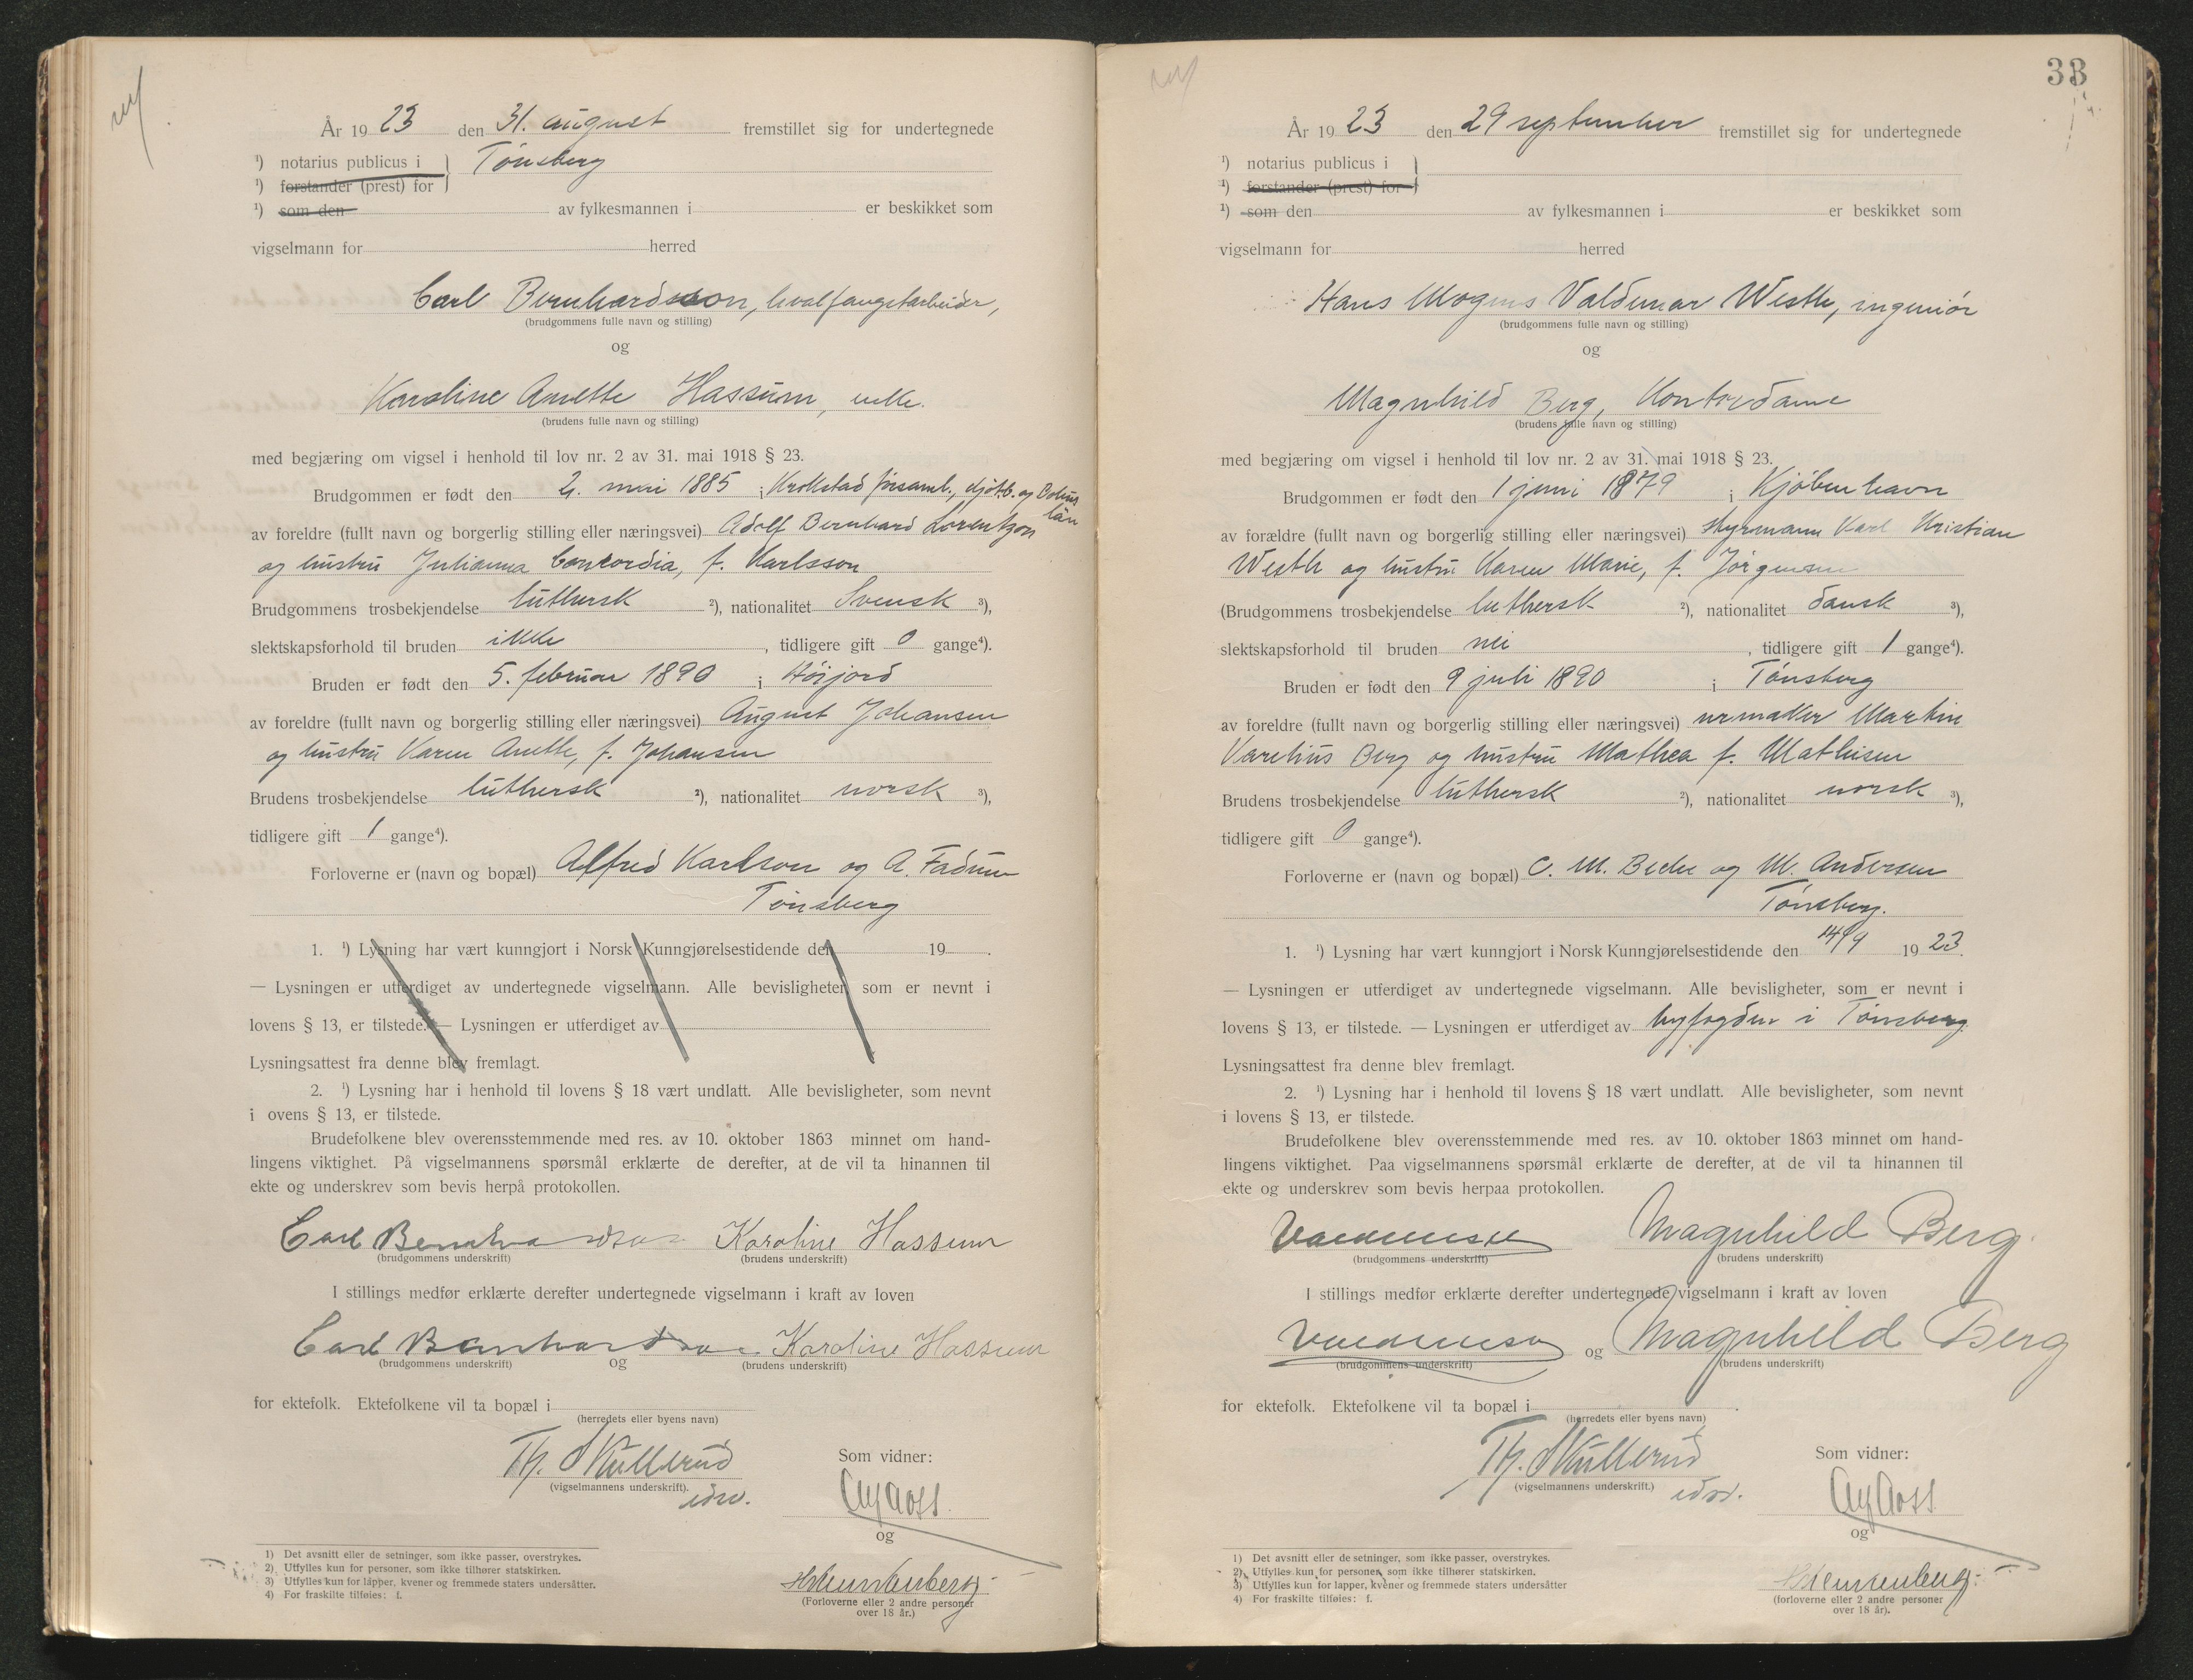 År 1923 den 31. august fremstillet sig for undertegnede
¹) notarius publicus i Tønsberg
¹) forstander (prest) for
¹) som den av fylkesmannen i er beskikket som
vigselmann for herred
Carl Bernhardsson, hvalfangstarbeider,
(brudgommens fulle navn og stilling)
og
Karoline Anette Hassum, enke.
(brudens fulle navn og stilling)
med begjæring om vigsel i henhold til lov nr. 2 av 31. mai 1918 § 23.
Brudgommen er født den 2. mai 1885 i Krokstad församl., Gjötb. og Bohus
län
av foreldre (fullt navn og borgerlig stilling eller næringsvei) Adolf Bernhard Lorentzon
og hustru Julianna Concordia, f. Karlsson
Brudgommens trosbekjendelse luthersk ²), nationalitet Svensk ³),
slektskapsforhold til bruden ikke, tidligere gift 0 gange⁴).
Bruden er født den 5. februar 1890 i Høijord
av foreldre (fullt navn og borgerlig stilling eller næringsvei) August Johansen
og hustru Karen Anette, f. Johansen
Brudens trosbekjendelse luthersk ²), nationalitet norsk ³),
tidligere gift 1 gange⁴).
Forloverne er (navn og bopæl) Alfred Karlson og A. Fadum
Tønsberg
1. ¹) Lysning har vært kunngjort i Norsk Kunngjørelsestidende den 19 .
— Lysningen er utferdiget av undertegnede vigselmann. Alle bevisligheter, som er nevnt i
lovens § 13, er tilstede. — Lysningen er utferdiget av
Lysningsattest fra denne blev fremlagt.
2. ¹) Lysning har i henhold til lovens § 18 vært undlatt. Alle bevisligheter, som nevnt
i ovens § 13, er tilstede.
Brudefolkene blev overensstemmende med res. av 10. oktober 1863 minnet om hand-
lingens viktighet. På vigselmannens spørsmål erklærte de derefter, at de vil ta hinannen til
ekte og underskrev som bevis herpå protokollen.
Carl Bernhardson Karoline Hassum
(brudgommens underskrift) (brudens underskrift)
I stillings medfør erklærte derefter undertegnede vigselmann i kraft av loven
Carl Bernhardson Karoline Hassum
(brudgommens underskrift) og (brudens underskrift)
for ektefolk. Ektefolkene vil ta bopæl i
(herredets eller byens navn)
Th. Skullerud
(vigselmannens underskrift).
Som vidner:
og
(Forloverne eller 2 andre personer
over 18 år.)
1) Det avsnitt eller de setninger, som ikke passer, overstrykes.
2) Utfylles kun for personer, som ikke tilhører statskirken.
3) Utfylles kun for lapper, kvener og fremmede staters undersåtter.
4) For fraskilte tilføies: f.
33
År 1923 den 29 september fremstillet sig for undertegnede
¹) notarius publicus i
¹) forstander (prest) for
¹) som den av fylkesmannen i er beskikket som
vigselmann for herred
Hans Mogens Valdemar Westh, ingeniør
(brudgommens fulle navn og stilling)
og
Magnhild Berg, Kontordame
(brudens fulle navn og stilling)
med begjæring om vigsel i henhold til lov nr. 2 av 31. mai 1918 § 23.
Brudgommen er født den 1 juni 1879 i Kjøbenhavn
av forældre (fullt navn og borgerlig stilling eller næringsvei) styrmann Karl Kristian
Westh og hustru Karen Marie, f. Jørgensen
(Brudgommens trosbekjendelse luthersk ²), nationalitet dansk ³),
slektskapsforhold til bruden nei, tidligere gift 1 gange⁴).
Bruden er født den 9 juli 1890 i Tønsberg
av foreldre (fullt navn og borgerlig stilling eller næringsvei) urmaker Martin
Varelius Berg og hustru Mathea f. Mathisen
Brudens trosbekjendelse luthersk ²), nationalitet norsk ³),
tidligere gift 0 gange⁴).
Forloverne er (navn og bopæl) C. M. og M. Andersen
Tønsberg.
1. ¹) Lysning har vært kunngjort i Norsk Kunngjørelsestidende den 14/9 1923.
— Lysningen er utferdiget av undertegnede vigselmann. Alle bevisligheter, som er nevnt i
lovens § 13, er tilstede. — Lysningen er utferdiget av byfogden i Tønsberg
Lysningsattest fra denne blev fremlagt.
2. ¹) Lysning har i henhold til lovens § 18 vært undlatt. Alle bevisligheter, som nevnt
i lovens § 13, er tilstede.
Brudefolkene blev overensstemmende med res. av 10. oktober 1863 minnet om hand-
lingens viktighet. Paa vigselmannens spørsmål erklærte de derefter, at de vil ta hinannen til
ekte og underskrev som bevis herpaa protokollen.
Magnhild Berg
(brudgommens underskrift) (brudens underskrift)
I stillings medfør erklærte derefter undertegnede vigselmann i kraft av loven
og Magnhild Berg
(brudgommens underskrift) (brudens underskrift)
for ektefolk. Ektefolkene vil ta bopæl i .
(herredets eller byens navn)
Th. Skullerud
(vigselmannens underskrift.)
Som vidner:
og
(forloverne eller 2 andre personer
over 18 år).
1) Det avsnitt eller de setninger, som ikke passer, overstrykes.
2) Utfylles kun for personer, som ikke tilhører statskirken.
3) Utfylles kun for lapper, kvener og fremmede staters undersåtter
4) For fraskilte tilføies: f.